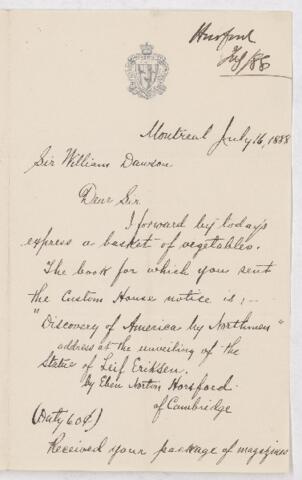 Horsford
July/88
Montreal July 16, 1888
Sir William Dawson
Dear Sir
I forward by today's
express a basket of vegetables.
The book for which you sent
the Custom House notice is; -
"Discovery of America by Northmen"
address at the unveiling of the
Statue of Leif Eriksen.
by Eben Norton Horsford
of Cambridge
(Duty 60¢)
Received your package of magazines